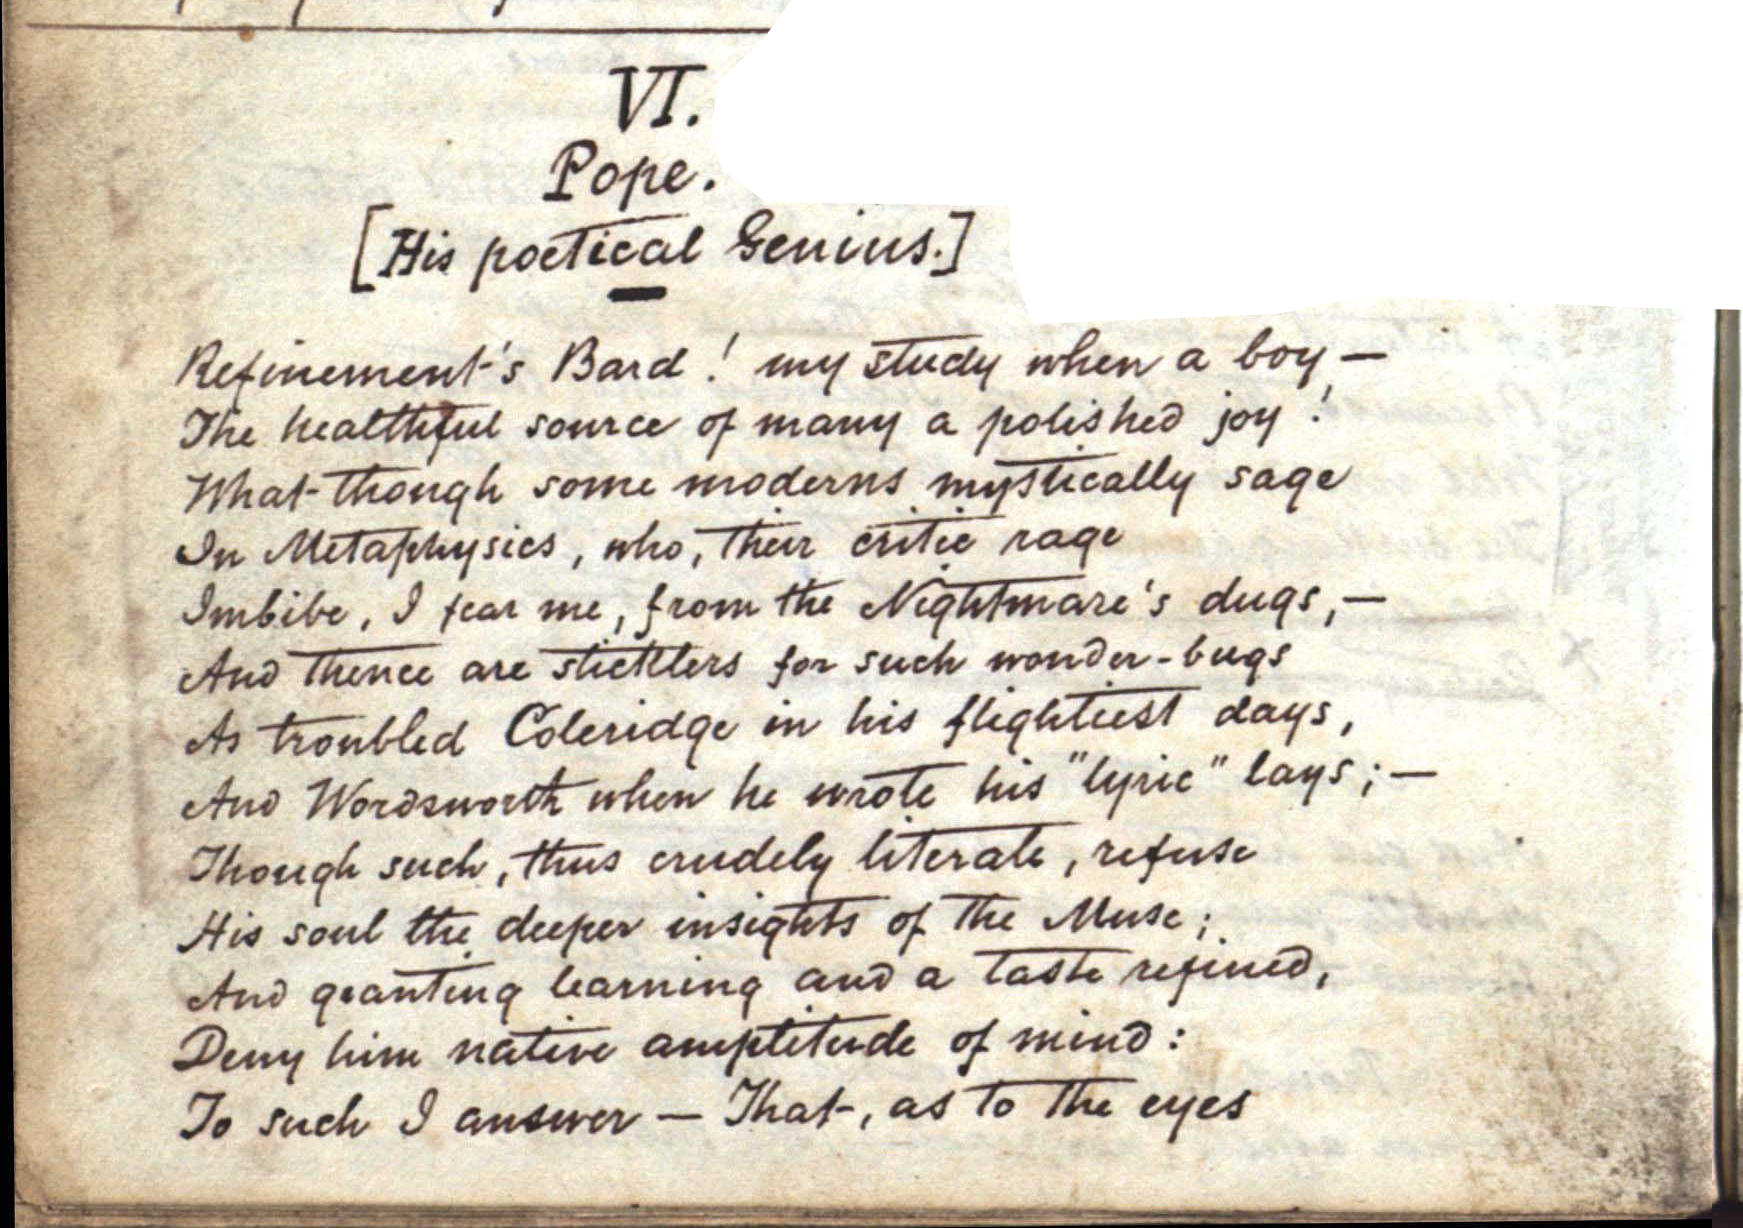 VI.
Pope.
[His poetical Genius.]
Refinement's Bard! my study when a boy —
The healthful source of many a polished joy!
What though some moderns mystically sage
In Metaphysics, who, their critic rage
Imbibe, I fear me, from the Nightmare's dugs, —
And thence are sticklers for such wonder-bugs
As troubled Coleridge in his flightiest days,
And Wordsworth when he wrote his "lyric" lays; —
Though such, thus crudely literate, refuse
His soul the deeper insights of the Muse;
And granting learning and a taste refined,
Deny him native amptitude of mind:
To such I answer — That, as to the eyes